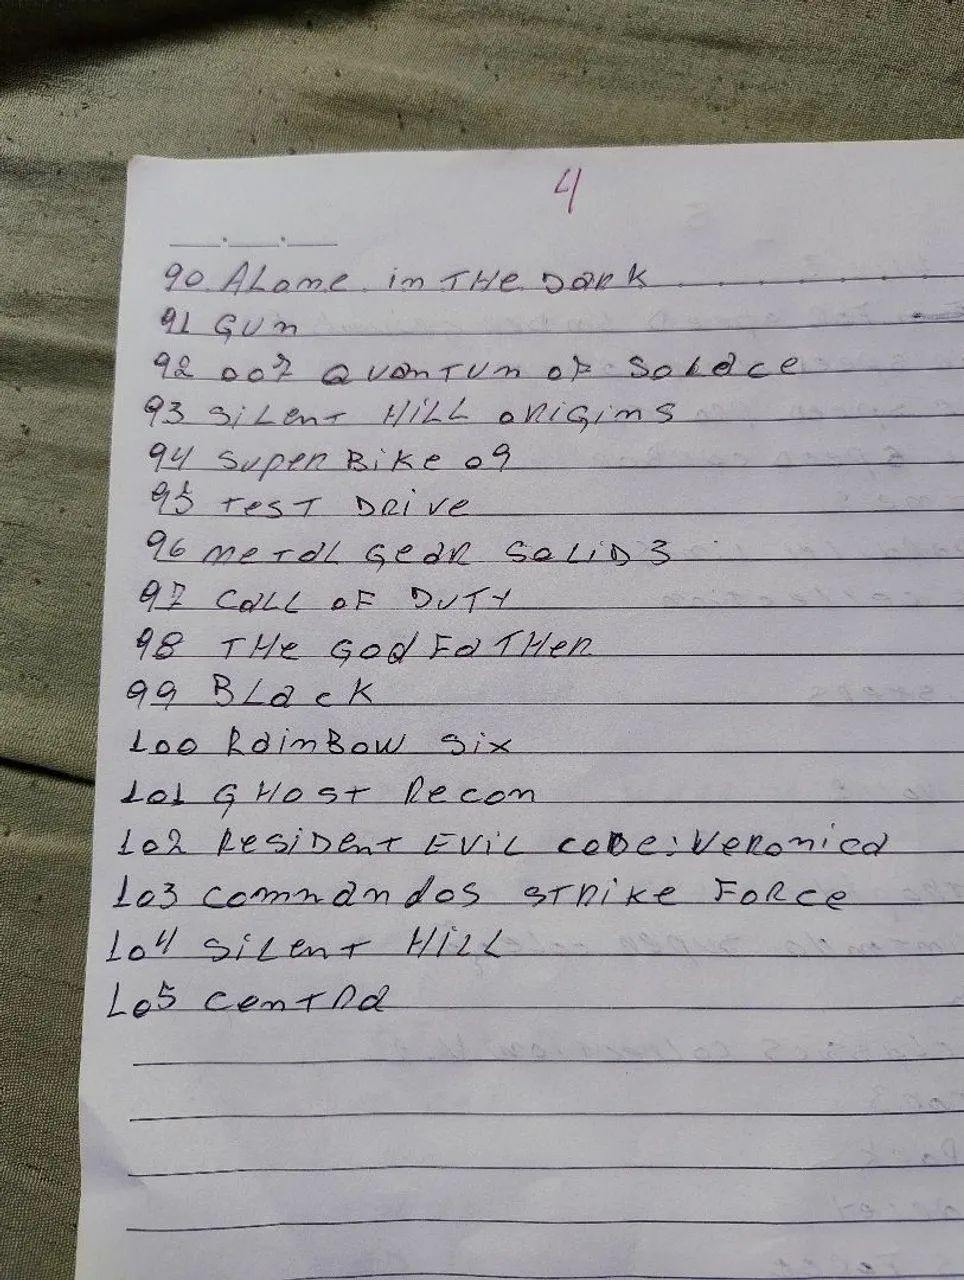 4
90 ALone in THe Dark
91 Gun
92 007 Quantum of Solace
93 SiLent HiLL oRiGins
94 Super Bike 09
95 TesT Drive
96 MeTaL GeaR SoLiD 3
97 CaLL oF DuTY
98 THe GodFaTHeR
99 BLack
100 RainBow Six
101 GHosT Recon
102 ResiDenT EviL coDe:VeRonica
103 commandos sTRike FoRce
104 SiLenT HiLL
105 conTRa